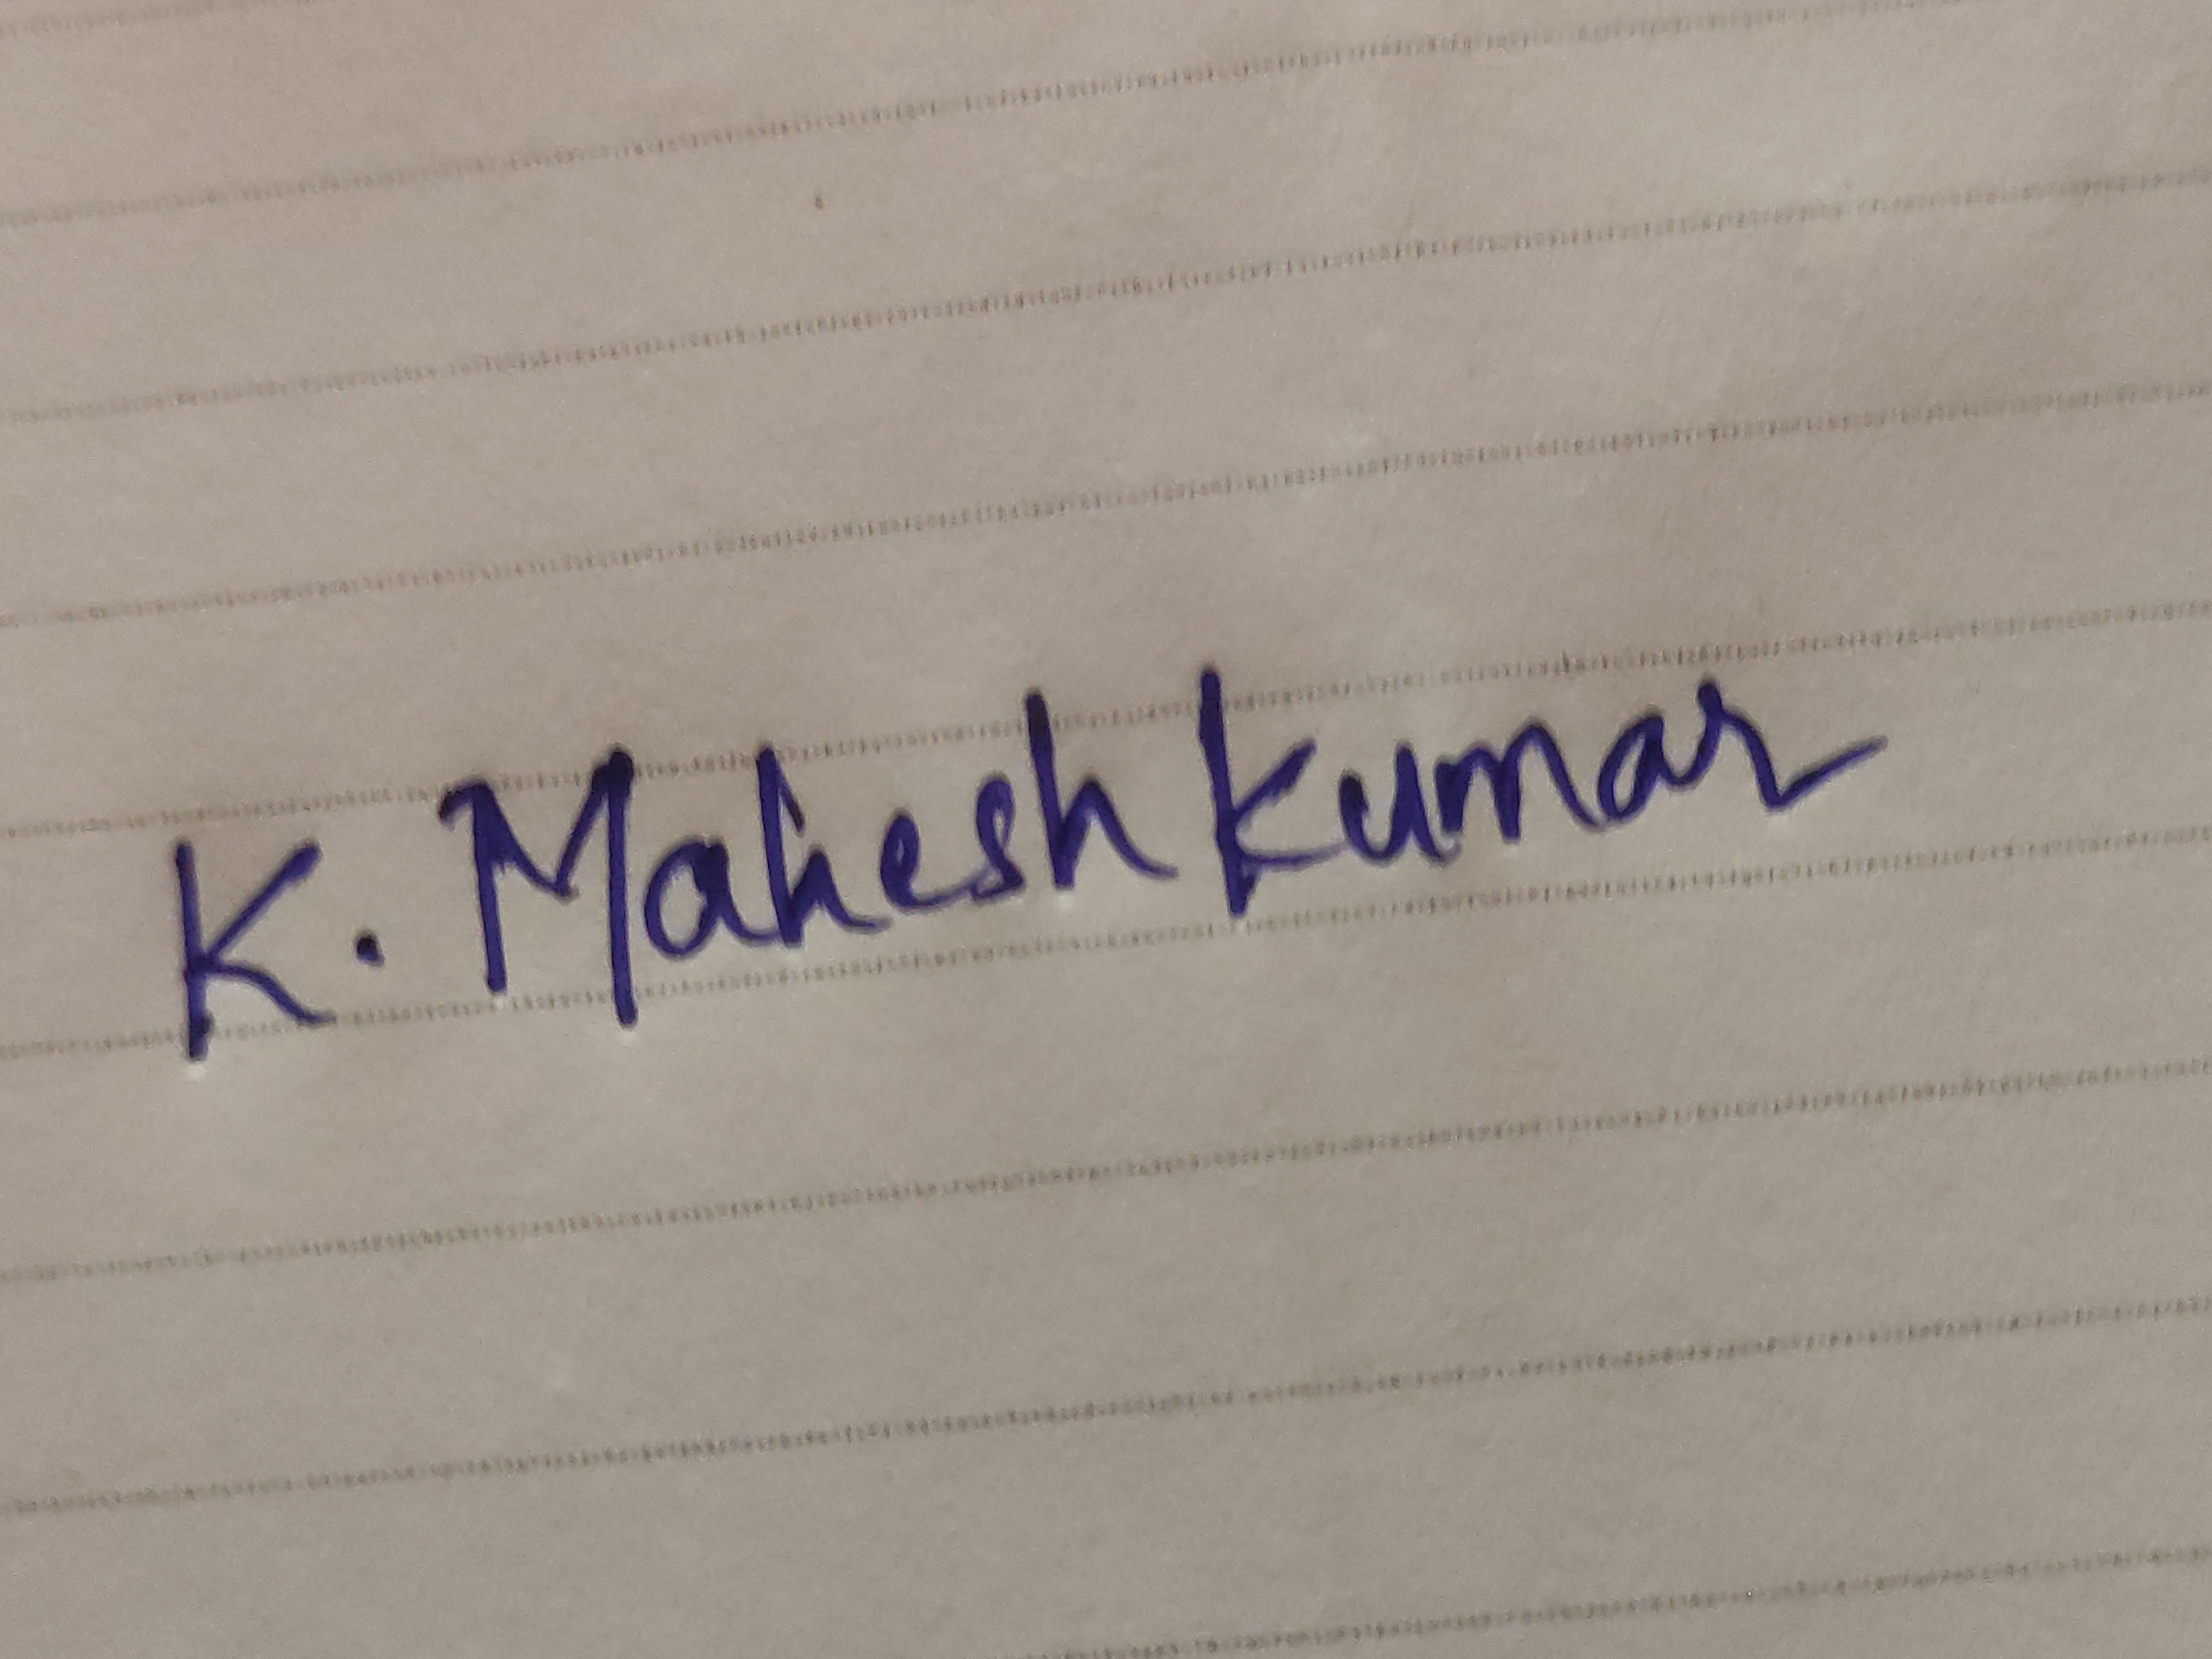 K. Mahesh Kumar